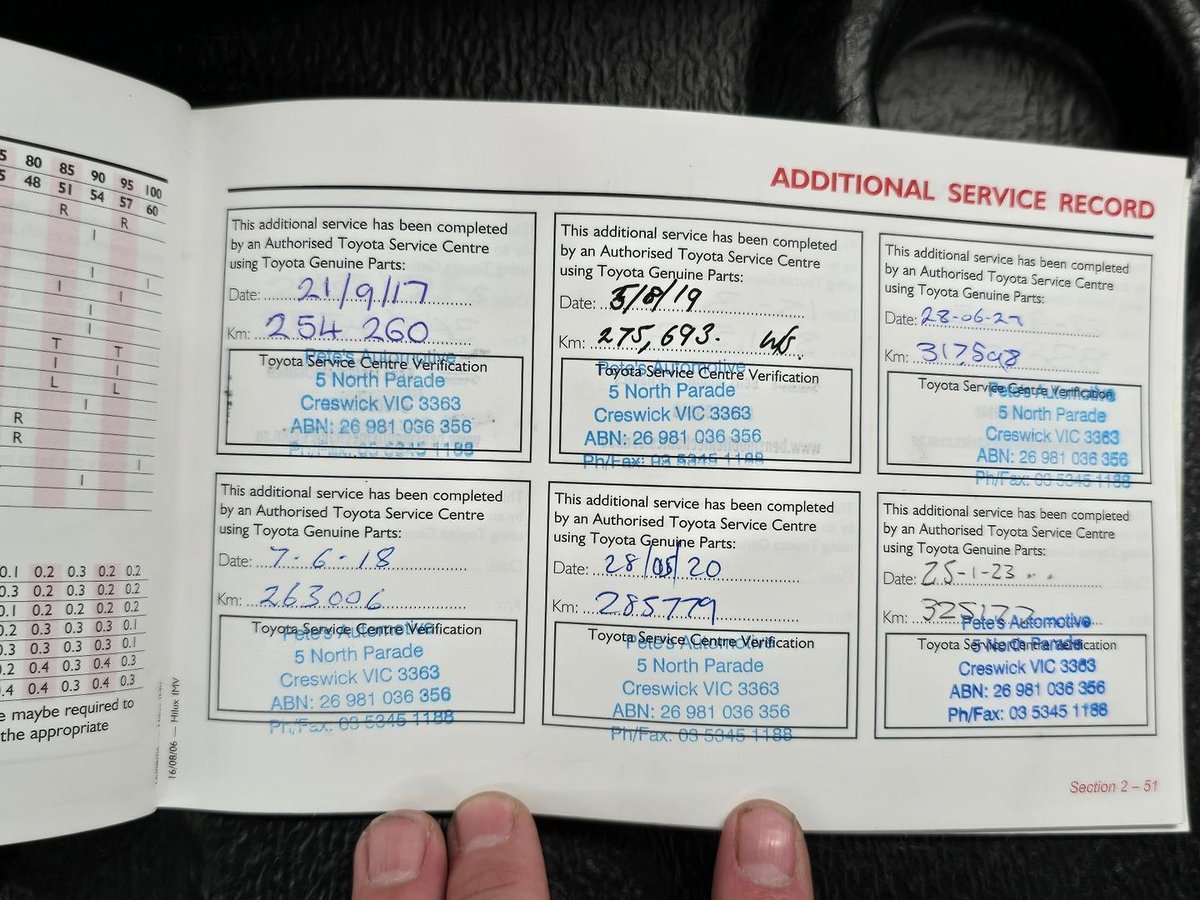 5 80 85 90 95 100
5 48 51 54 57 60
R R
I
I I
I I
I
I
T T
I I
L L
I
R
R
I
I
0.1 0.2 0.3 0.2 0.2
0.3 0.2 0.3 0.2 0.2
0.1 0.2 0.2 0.2 0.2
0.2 0.3 0.3 0.3 0.1
0.3 0.3 0.3 0.3 0.1
0.2 0.4 0.3 0.4 0.3
0.4 0.4 0.3 0.4 0.3
e maybe required to
the appropriate
16/08/06 — Hilux IMV
ADDITIONAL SERVICE RECORD
This additional service has been completed
by an Authorised Toyota Service Centre
using Toyota Genuine Parts:
Date: 21/9/17
Km: 254 260
Toyota Service Centre Verification
Pete's Automotive
5 North Parade
Creswick VIC 3363
ABN: 26 981 036 356
Ph/Fax: 03 5345 1188
This additional service has been completed
by an Authorised Toyota Service Centre
using Toyota Genuine Parts:
Date: 5/8/19
Km: 275,693.
Toyota Service Centre Verification
Pete's Automotive
5 North Parade
Creswick VIC 3363
ABN: 26 981 036 356
Ph/Fax: 03 5345 1188
This additional service has been completed
by an Authorised Toyota Service Centre
using Toyota Genuine Parts:
Date:
Km: 317598
Toyota Service Centre Verification
Pete's Automotive
5 North Parade
Creswick VIC 3363
ABN: 26 981 036 356
Ph/Fax: 03 5345 1188
This additional service has been completed
by an Authorised Toyota Service Centre
using Toyota Genuine Parts:
Date: 7-6-18
Km: 263006
Toyota Service Centre Verification
Pete's Automotive
5 North Parade
Creswick VIC 3363
ABN: 26 981 036 356
Ph/Fax: 03 5345 1188
This additional service has been completed
by an Authorised Toyota Service Centre
using Toyota Genuine Parts:
Date: 28/05/20
Km: 285779
Toyota Service Centre Verification
Pete's Automotive
5 North Parade
Creswick VIC 3363
ABN: 26 981 036 356
Ph/Fax: 03 5345 1188
This additional service has been completed
by an Authorised Toyota Service Centre
using Toyota Genuine Parts:
Date: 25-1-23
Km:
Pete's Automotive
Toyota Service Centre Verification
5 North Parade
Creswick VIC 3363
ABN: 26 981 036 356
Ph/Fax: 03 5345 1188
Section 2 – 51